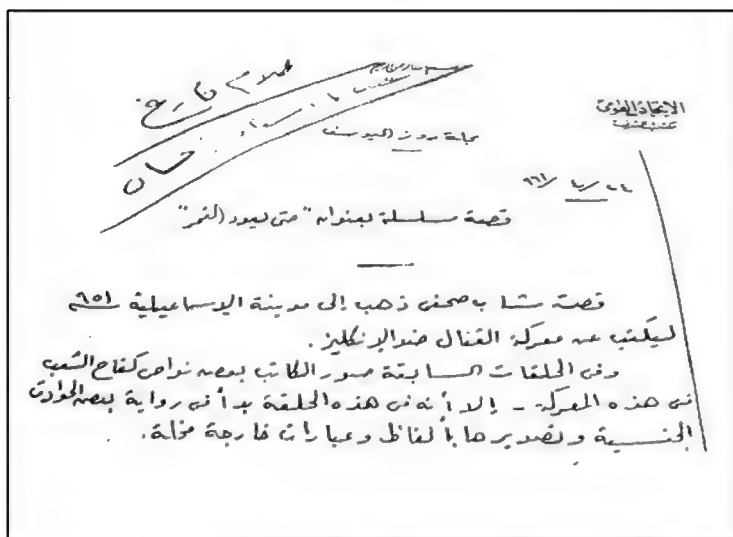 كلام فارغ
الاتحاد القومى
مجلة روز اليوسف
٢٤/ ٤/ ٩٦١
قصة مسلسلة بعنوان "حتى يعود القمر"
قصة شاب صحفى ذهب إلى مدينة الاسماعيلية ٩٥١
ليكتب عن معركة القنال ضد الإنكليز .
وفى الحلقات السابقة صور الكاتب بعض نواحى كفاح الشعب
فى هذه المعركة - إلا أنه فى هذه الحلقة بدأ فى رواية بعض الحوادث
الجنسية وتصويرها بألفاظ وعبارات خارجة مخلة .